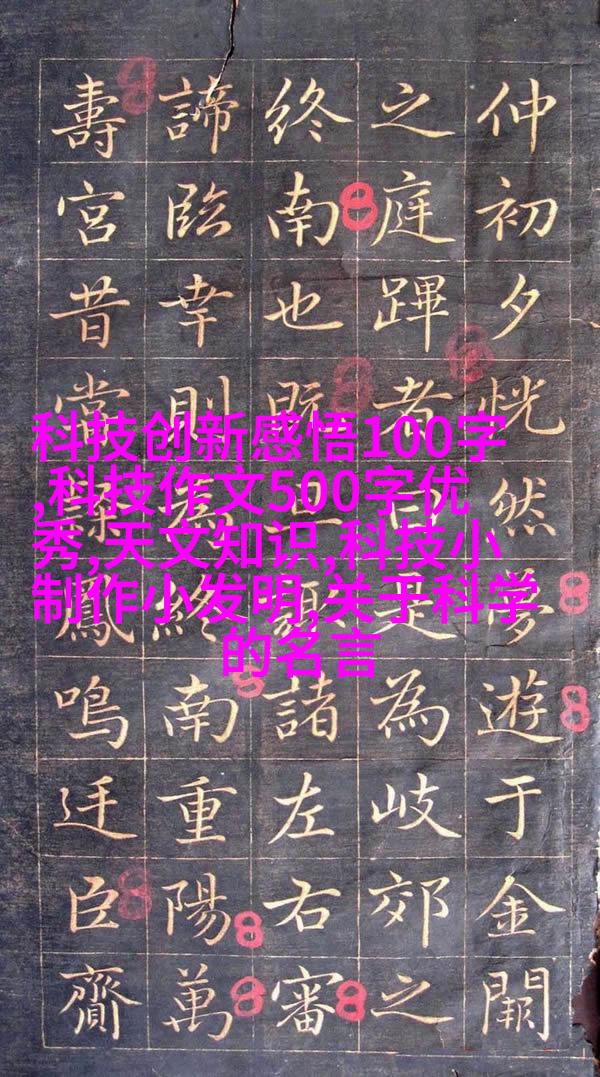 仲初夕恍然夢遊于金闕
之庭蹕者曰是為岐郊之
終南也既上顧諸左右審
諦臨幸則為終南重陽萬
壽宮昔常鳳鳴迋臣齎
科技创新感悟100字
,科技作文500字优
秀,天文知识,科技小
制作小发明,关于科学
的名言